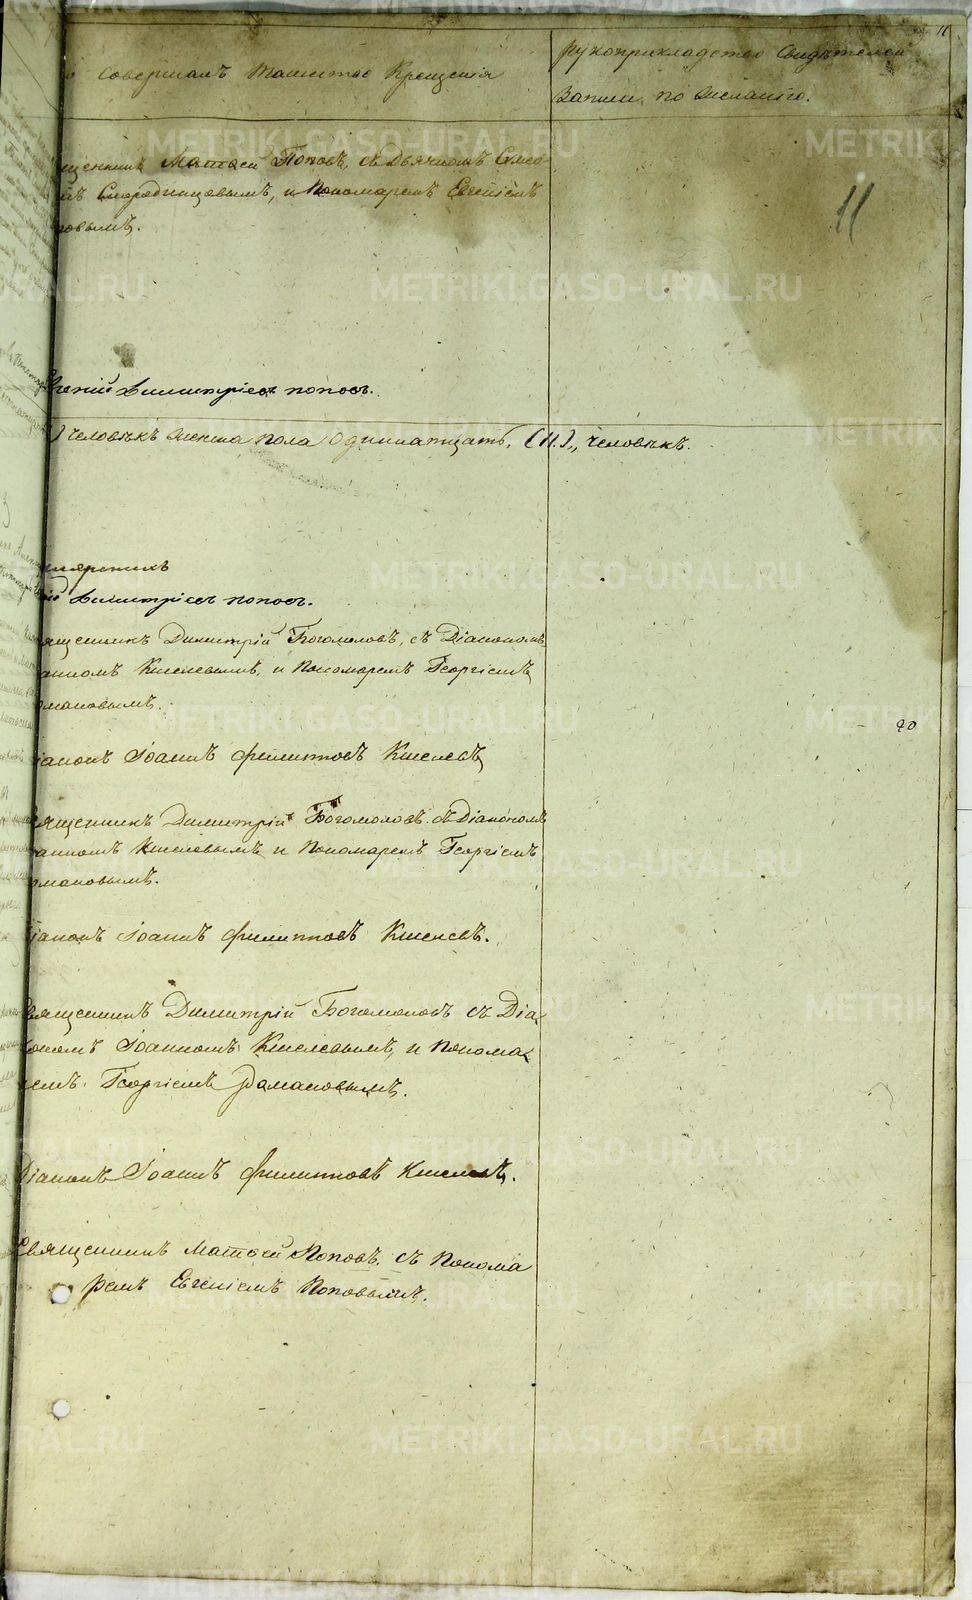 11
Совершалъ Таинство Крещенія
рукоприкладство Свидѣтелей
Записи по желанію.
щенникъ Матѳей Поповъ, съ Дьячкомъ Симео-
мъ Смородинцовымъ, и Пономаремъ Евгеніемъ
повымъ.
11
вгеній Димитріевъ поповъ.
) Человѣкъ женска пола Одиннатцать, (11.), человѣкъ.
ній Димитріевъ поповъ.
ященникъ Димитрій Богомоловъ, съ Діакономъ
анномъ Киселевымъ, и Пономаремъ Георгіемъ
омановымъ.
90
іаконъ Іоаннъ Филиповъ Киселевъ
вященникъ Димитрій Богомоловъ съ Діакономъ
анномъ Киселевымъ и Пономаремъ Георгіемъ
омановымъ.
іаконъ Іоаннъ Филиповъ Киселевъ.
Священникъ Димитрій Богомоловъ съ Діа-
кономъ Іоанномъ Киселевымъ, и Понома-
ремъ Георгіемъ Романовымъ.
Діаконъ Іоаннъ Филиповъ Киселевъ.
Священникъ Матѳей Поповъ, съ Понома
ремъ Евгеніемъ Поповымъ.
METRIKI.GASO-URAL.RU